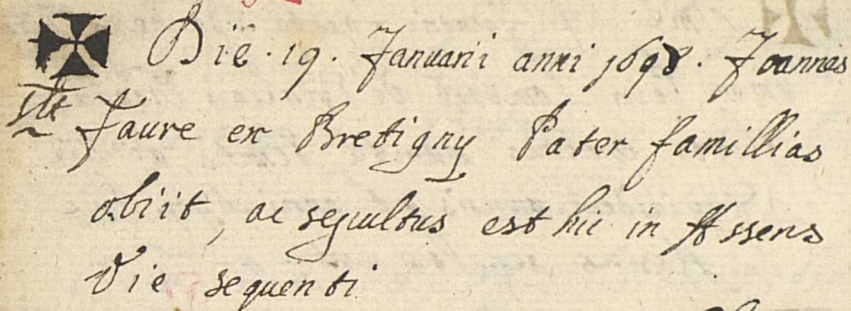 Die . 19 . Januarii anni 1698 . Joannes
Faure ex Bretigny Pater famillias
obiit, ac sepultus est hic in Assens
Die sequenti